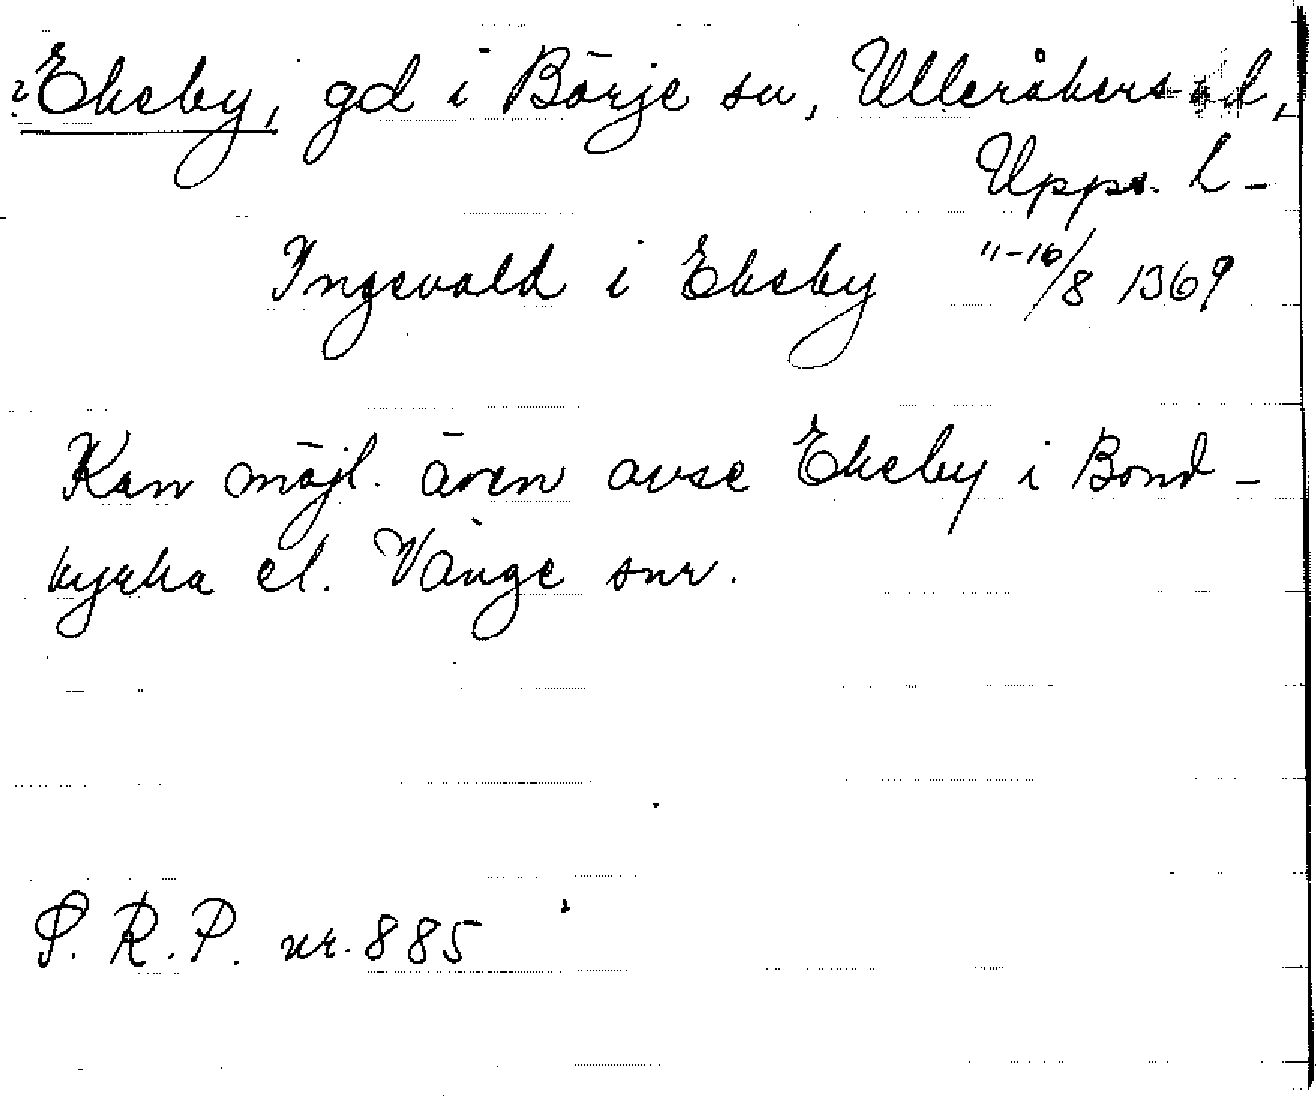 ?Ekeby, gd i Börje sn, Ulleråkers hd,
Upps. l-
Ingevald i Ekeby 11-16/8 1369
Kan möjl. även avse Ekeby i Bond-
kyrka el. Vänge snr.
S. R. P. nr. 885